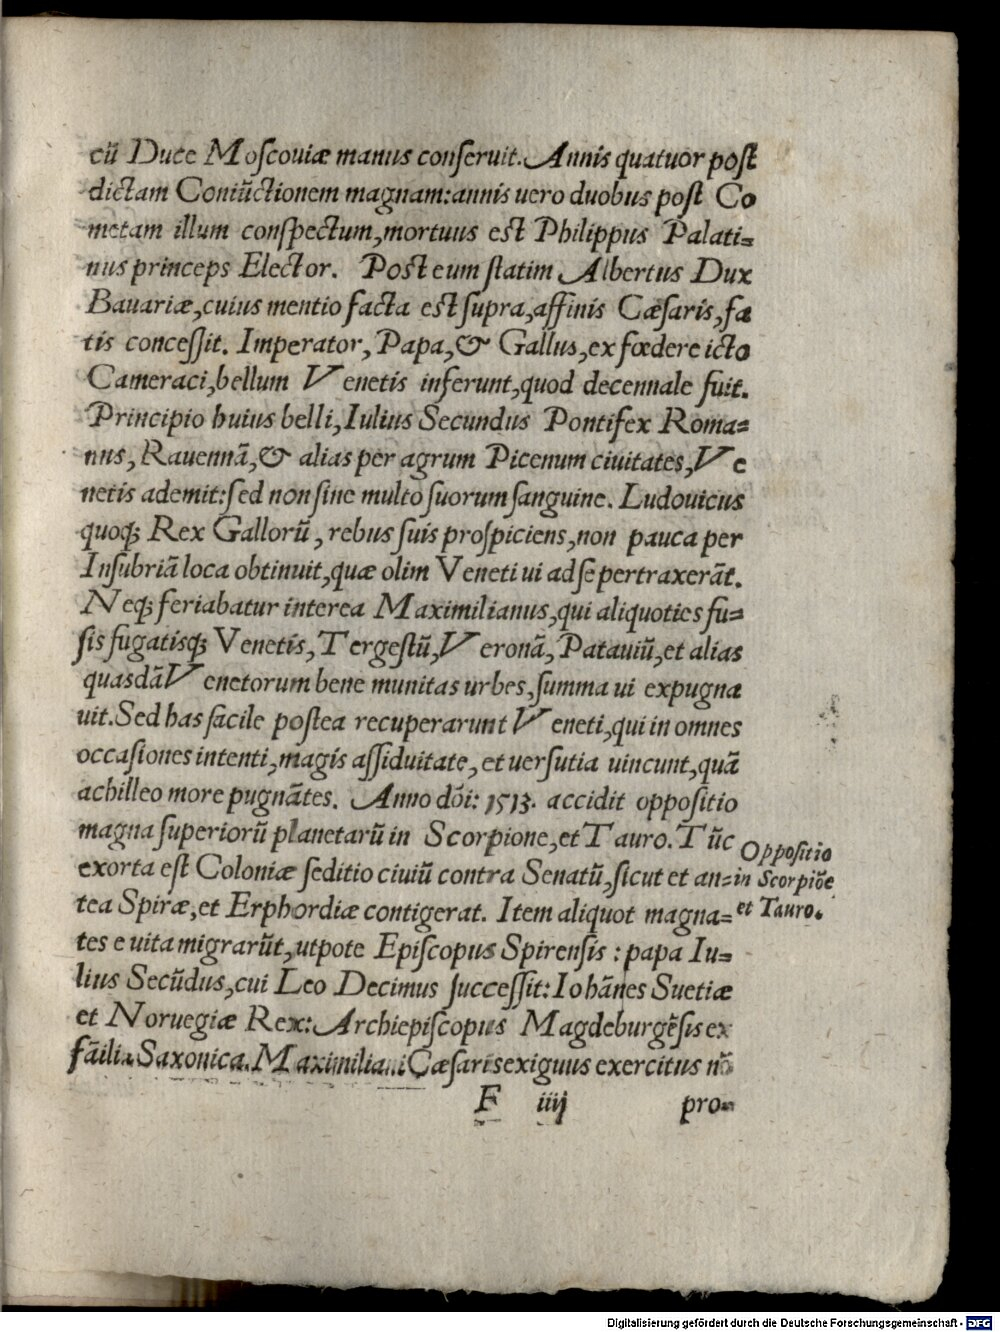 cū Duce Moſcouiæ manus conſeruit. Annis quatuor poſt
dictam Coniūctionem magnam: annis uero duobus poſt Co
metam illum conſpectum, mortuus eſt Philippus Palati=
nus princeps Elector. Poſt eum ſtatim Albertus Dux
Bauariæ, cuius mentio facta eſt ſupra, affinis Cæſaris, fa
tis conceſſit. Imperator, Papa, & Gallus, ex fœdere icto
Cameraci, bellum Venetis inferunt, quod decennale fuit.
Principio huius belli, Iulius Secundus Pontifex Roma=
nus, Rauennā, & alias per agrum Picenum ciuitates, Ve
netis ademit: ſed non ſine multo ſuorum ſanguine. Ludouicus
quoq; Rex Gallorū, rebus ſuis proſpiciens, non pauca per
Inſubriā loca obtinuit, quæ olim Veneti ui ad ſe pertraxerāt.
Neq; feriabatur interea Maximilianus, qui aliquoties fu=
ſis fugatisq; Venetis, Tergeſtū, Veronā, Patauiū, et alias
quasdā Venetorum bene munitas urbes, ſumma ui expugna
uit. Sed has facile poſtea recuperarunt Veneti, qui in omnes
occaſiones intenti, magis aſſiduitate, et uerſutia uincunt, quā
achilleo more pugnātes. Anno dōi: 1513. accidit oppoſitio
magna ſuperiorū planetarū in Scorpione, et Tauro. Tūc
exorta eſt Coloniæ ſeditio ciuiū contra Senatū, ſicut et an=
tea Spiræ, et Erphordiæ contigerat. Item aliquot magna=
tes e uita migrarūt, utpote Epiſcopus Spirenſis: papa Iu=
lius Secūdus, cui Leo Decimus ſucceſſit: Iohānes Suetiæ
et Noruegiæ Rex: Archiepiſcopus Magdeburgēſis ex
fāilia Saxonica. Maximiliani Cæſaris exiguus exercitus nō
F iiij pro=
Oppoſitio
in Scorpiōe
et Tauro.
Digitalisierung gefördert durch die Deutsche Forschungsgemeinschaft - DFG